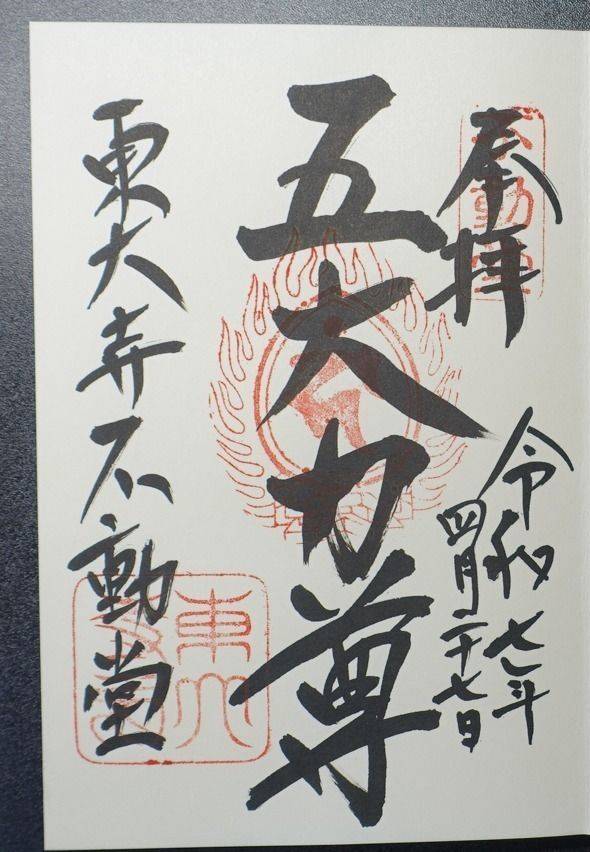 奉拝
令和七年
四月二十七日
五大力尊
東大寺不動堂
不動堂